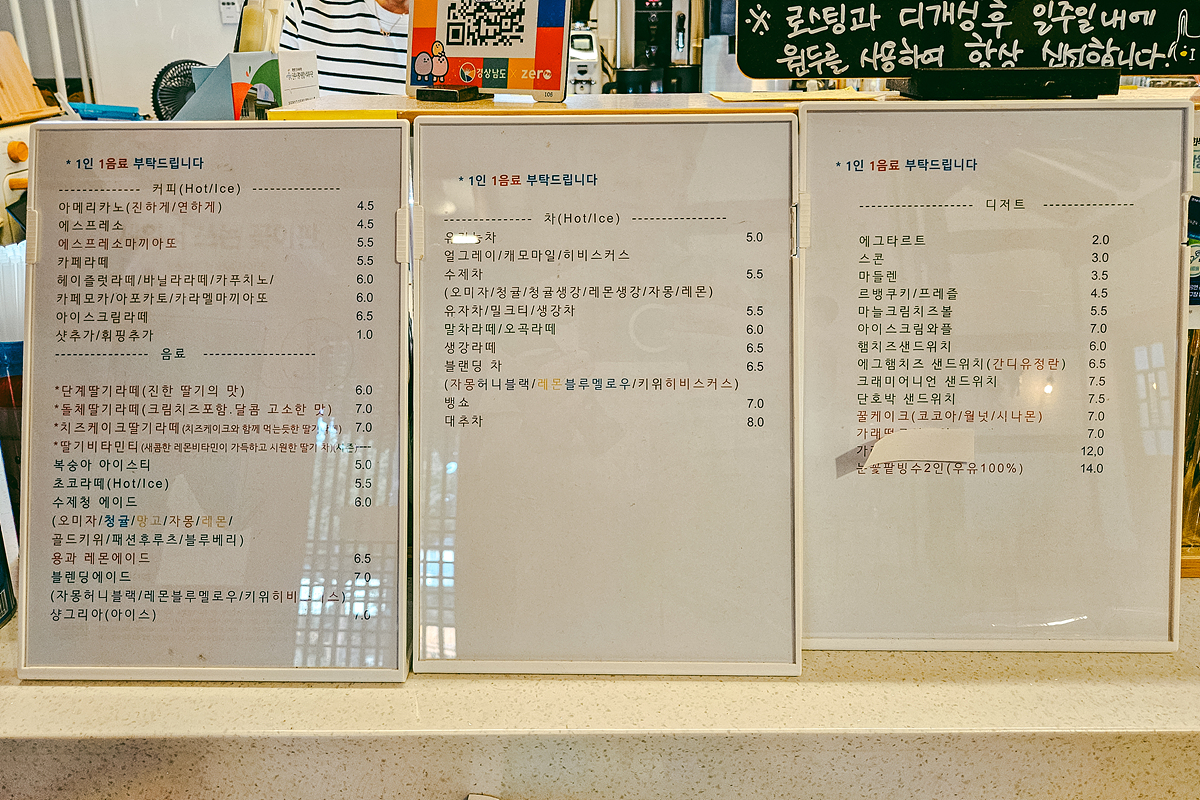 ※ 로스팅과 디개싱후 일주일내에
원두를 사용하며 항상 신선합니다.
경상남도 × zero
106
* 1인 1음료 부탁드립니다
커피(Hot/Ice)
아메리카노(진하게/연하게) 4.5
에스프레소 4.5
에스프레소마끼아또 5.5
카페라떼 5.5
헤이즐럿라떼/바닐라라떼/카푸치노/ 6.0
카페모카/아포카토/카라멜마끼아또 6.0
아이스크림라떼 6.5
샷추가/휘핑추가 1.0
음료
*단계딸기라떼(진한 딸기의 맛) 6.0
*돌체딸기라떼(크림치즈포함.달콤 고소한 맛) 7.0
*치즈케이크딸기라떼(치즈케이크와 함께 먹는듯한 7.0
*딸기비타민티(새콤한 레몬비타민이 가득하고 시원한 딸기 차)
복숭아 아이스티 5.0
초코라떼(Hot/Ice) 5.5
수제청 에이드 6.0
(오미자/청귤/망고/자몽/레몬/
골드키위/패션후루츠/블루베리)
용과 레몬에이드 6.5
블렌딩에이드 7.0
(자몽허니블랙/레몬블루멜로우/키위히비스)
샹그리아(아이스) 7.0
* 1인 1음료 부탁드립니다
차(Hot/Ice)
차 5.0
얼그레이/캐모마일/히비스커스
수제차 5.5
(오미자/청귤/청귤생강/레몬생강/자몽/레몬)
유자차/밀크티/생강차 5.5
말차라떼/오곡라떼 6.0
생강라떼 6.5
블랜딩 차 6.5
(자몽허니블랙/레몬블루멜로우/키위히비스커스)
뱅쇼 7.0
대추차 8.0
* 1인 1음료 부탁드립니다
디저트
에그타르트 2.0
스콘 3.0
마들렌 3.5
르뱅쿠키/프레즐 4.5
마늘크림치즈볼 5.5
아이스크림와플 7.0
햄치즈샌드위치 6.0
에그햄치즈 샌드위치(간디유정란) 6.5
크래미어니언 샌드위치 7.5
단호박 샌드위치 7.5
꿀케이크(코코아/월넛/시나몬) 7.0
가래떡 7.0
12,0
눈꽃팥빙수2인(우유100%) 14.0